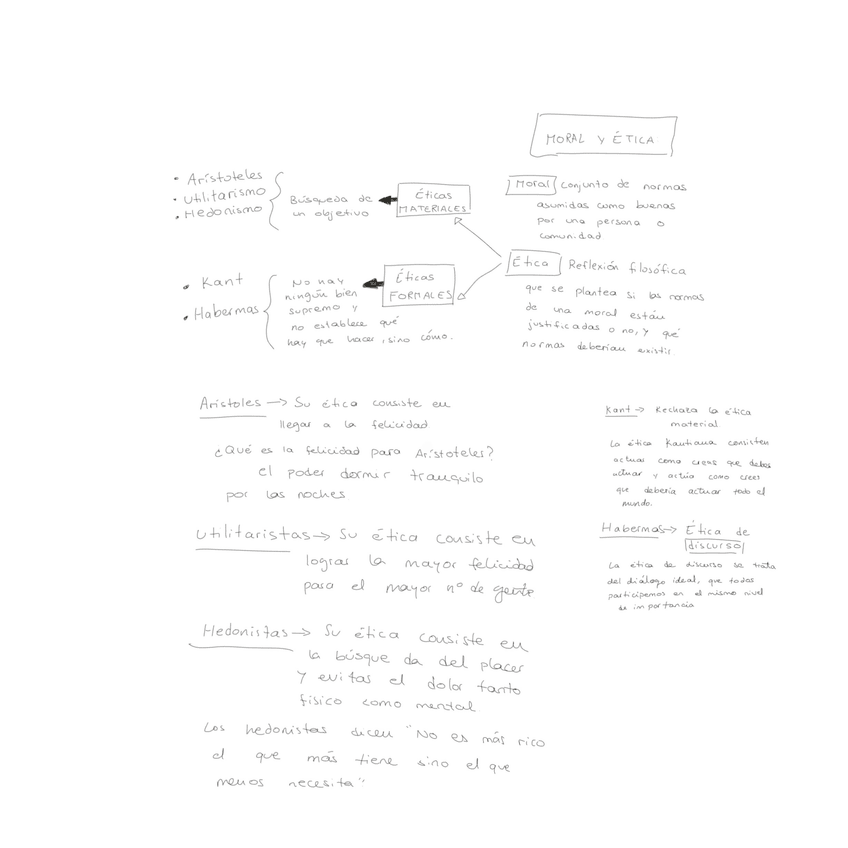 MORAL Y ÉTICA
Moral conjunto de normas
asumidas como buenas
por una persona o
comunidad
Ética Reflexión filosófica
que se plantea si las normas
de una moral están
justificadas o no, y qué
normas deberían existir.
Éticas
MATERIALES
Búsqueda de
un objetivo
• Aristoteles
• Utilitarismo
• Hedonismo
Éticas
FORMALES
No hay
ningún bien
supremo y
no establece qué
hay que hacer, sino cómo.
• Kant
• Habermas
Aristoles → Su ética consiste en
llegar a la felicidad
¿Qué es la felicidad para Aristoteles?
el poder dormir tranquilo
por las noches
Utilitaristas → Su ética consiste en
lograr la mayor felicidad
para el mayor nº de gente
Hedonistas → Su ética consiste en
la búsque da del placer
y evitas el dolor tanto
fisico como mental
Los hedonistas dicen "No es más rico
el que más tiene sino el que
menos necesita"
Kant → Rechaza la ética
material
La ética Kantiana consisten
actuar como creas que debes
actuar y actúa como crees
que debería actuar todo el
mundo.
Habermas → Ética de
discurso
La ética de discurso se trata
del diálogo ideal, que todos
participemos en el mismo nivel
de importancia